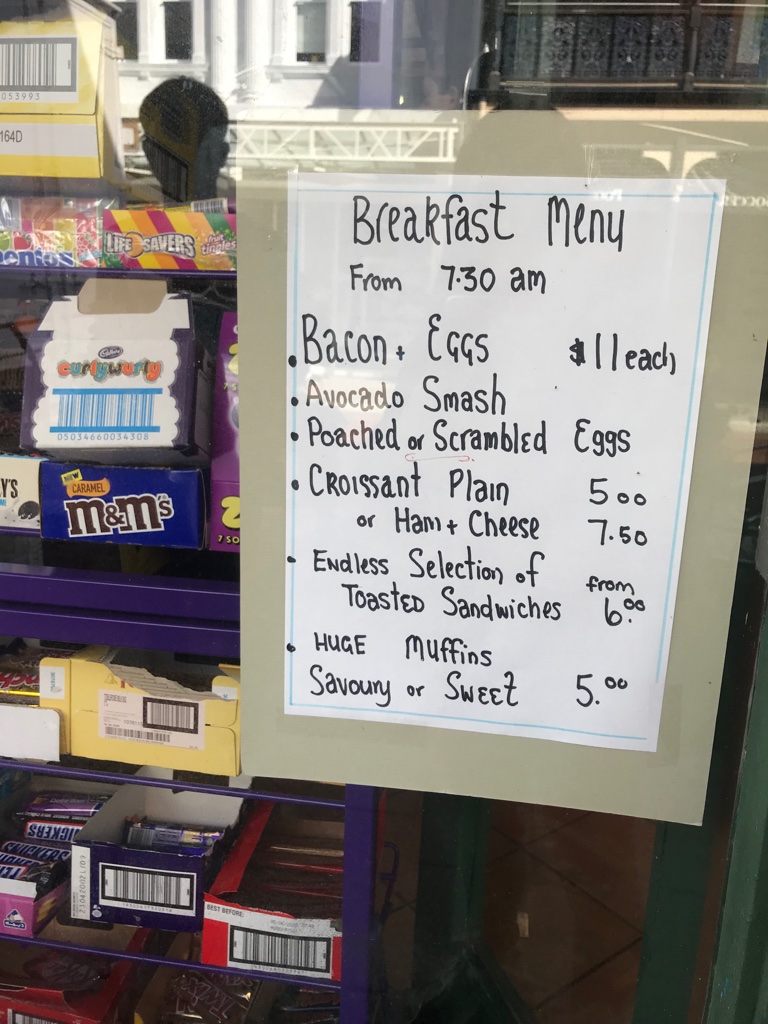 053993
164D
mentos
LIFE SAVERS
fruit tingles
Cadbury
curlywurly
05034660034308
NEW
CARAMEL
m&m's
SNICKERS
BEST BEFORE:
Breakfast Menu
From 7.30 am
• Bacon + Eggs $11 each
• Avocado Smash
• Poached or Scrambled Eggs
• Croissant Plain 5 00
or Ham + Cheese 7.50
• Endless Selection of from
Toasted Sandwiches 6.00
• HUGE Muffins
Savoury or Sweet 5.00